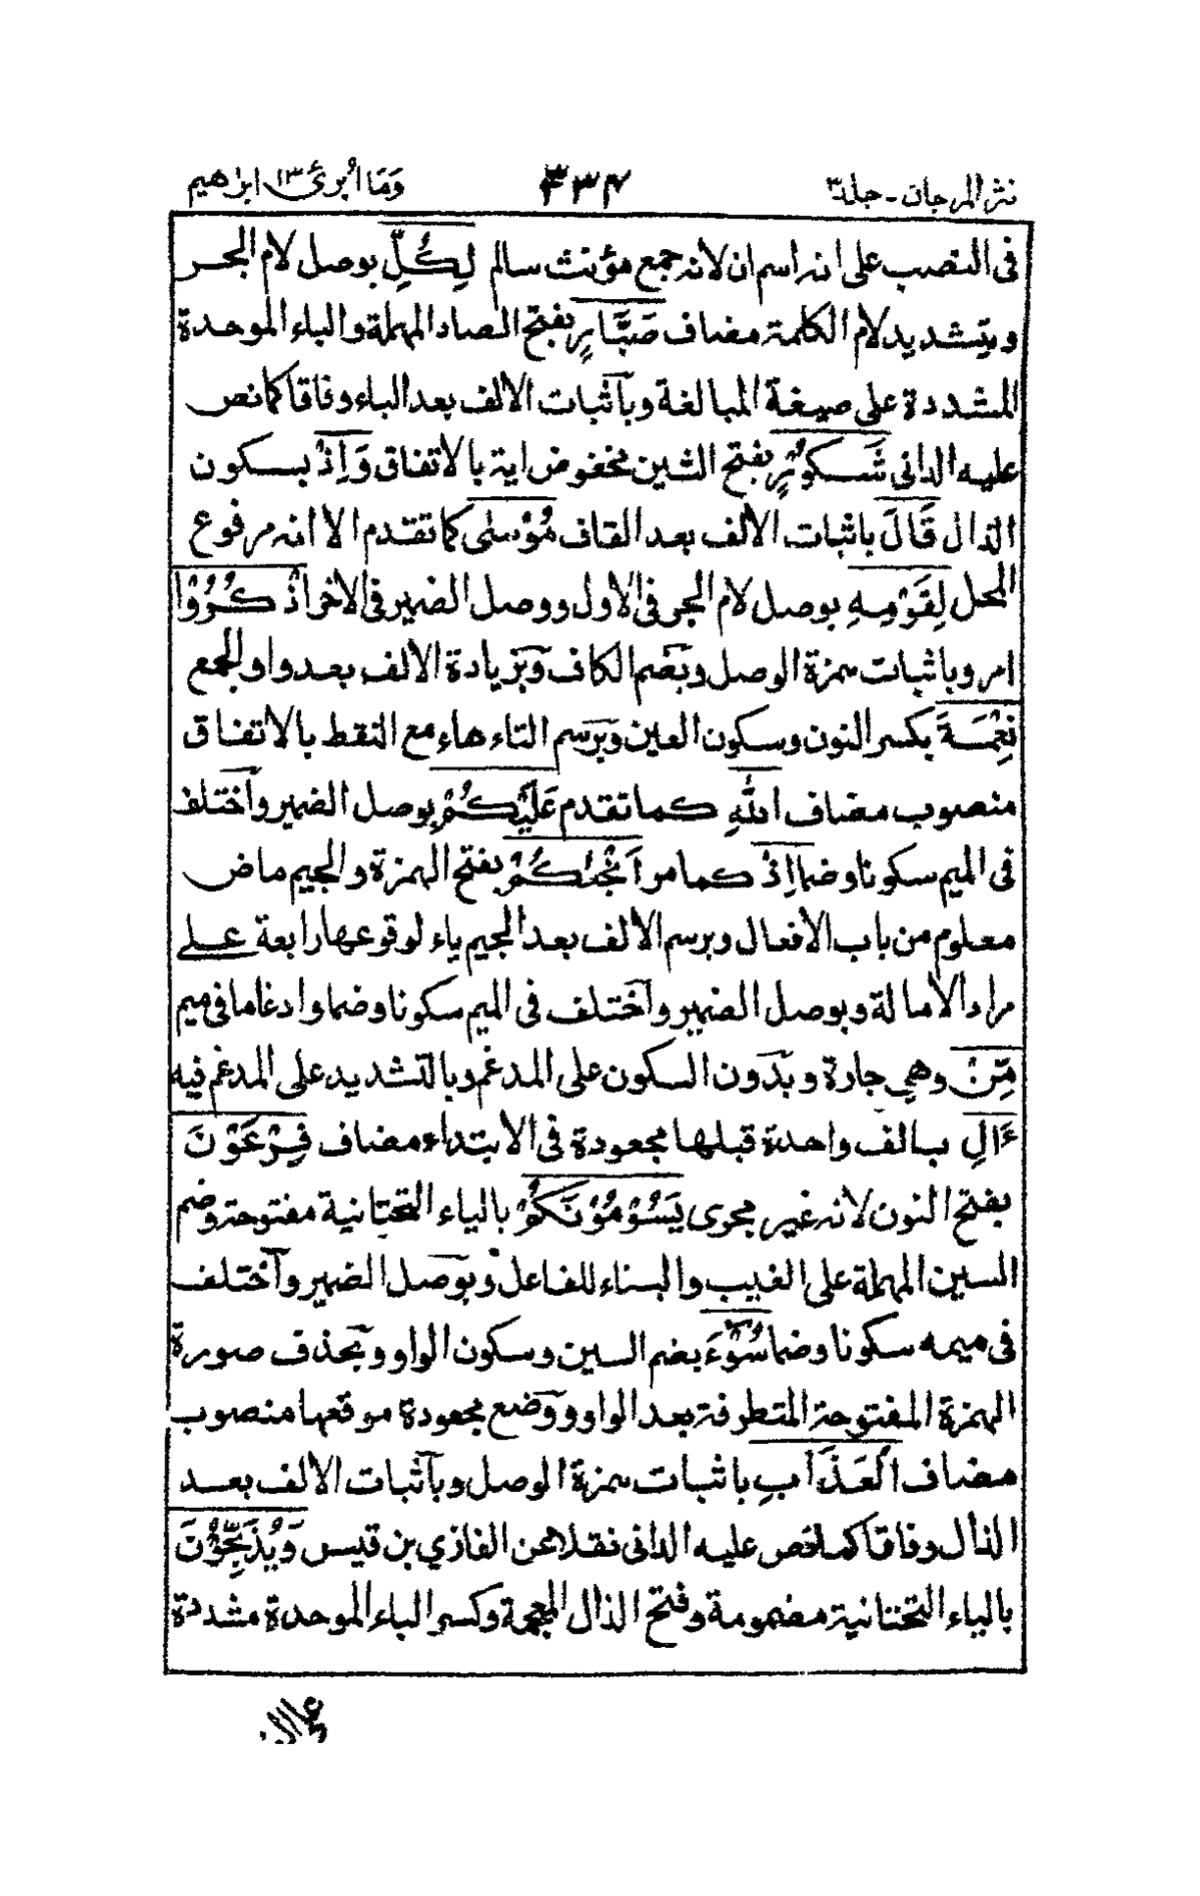 نثر المرجان - جلد ٣ ٣٣٤ وَمَا اُبرئ ١٣ ابراهيم
فى النصب على انه اسم ان لانه جمع مؤنث سالم لِكُلِّ بوصل لام الجر
وبتشديد لام الكلمة مضاف صَبَّارٍ بفتح الصاد المهملة والباء الموحدة
المشددة على صيغة المبالغة وبآثبات الالف بعد الباء وفاقا كما نص
عليه الدانى شَكُوْرٍ بفتح الشين مخفوض اية بالاتفاق وَاِذْ بسكون
الذال قَالَ باثبات الالف بعد القاف مُوْسٰى كما تقدم الا انه مرفوع
المحل لِقَوْمِهِ بوصل لام الجر فى الاول ووصل الضمير فى الاخر اذْكُرُوْا
امر وباثبات همزة الوصل وبضم الكاف وبزيادة الالف بعد واو الجمع
نِعْمَةَ بكسر النون وسكون العين وبرسم التاء هاء مع النقط بالاتفاق
منصوب مضاف اللّٰهِ كما تقدم عَلَيْكُمْ بوصل الضمير وآختلف
فى الميم سكونا وضما اِذْ كما مر اَنْجٰىكُمْ بفتح الهمزة والجيم ماض
معلوم من باب الافعال وبرسم الالف بعد الجيم ياء لوقوعها رابعة على
مراد الامالة وبوصل الضمير وآختلف فى الميم سكونا وضما وادغاما فى ميم
مِّنْ وهى جارة وبدون السكون على المدغم وبالتشديد على المدغم فيه
ءَالِ بالف واحدة قبلها مجعودة فى الابتداء مضاف فِرْعَوْنَ
بفتح النون لانه غير مجرى يَسُوْمُوْنَكُمْ بالياء التحتانية مفتوحة وضم
السين المهملة على الغيب والبناء للفاعل وبوصل الضمير وآختلف
فى ميمه سكونا وضما سُوْٓءَ بضم السين وسكون الواو وبحذف صورة
الهمزة المفتوحة المتطرفة بعد الواو ووضع مجعودة موقعها منصوب
مضاف الْعَذَابِ باثبات همزة الوصل وبآثبات الالف بعد
الذال وفاقا كما نص عليه الدانى نقلا عن الغازي بن قيس وَيُذَبِّحُوْنَ
بالياء التحتانية مضمومة وفتح الذال المعجمة وكسر الباء الموحدة مشددة